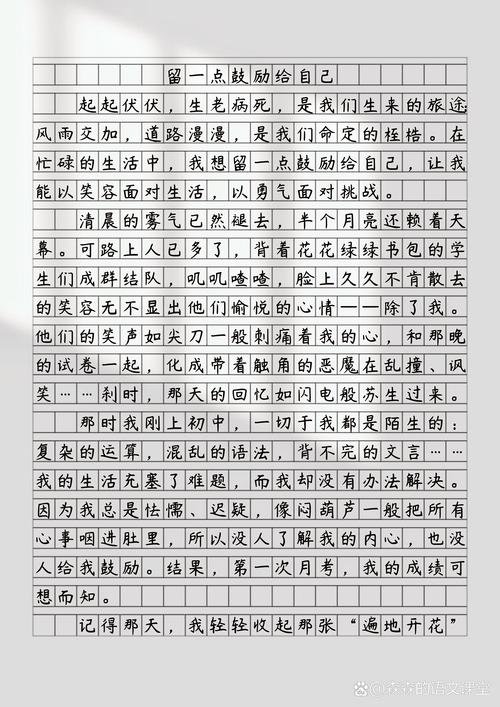 留一点鼓励给自己
起起伏伏，生老病死，是我们生来的旅途
风雨交加，道路漫漫，是我们命定的桎梏。在
忙碌的生活中，我想留一点鼓励给自己，让我
能以笑容面对生活，以勇气面对挑战。
清晨的雾气已然褪去，半个月亮还赖着天
幕。可路上人已多了，背着花花绿绿书包的学
生们成群结队，叽叽喳喳，脸上久久不肯散去
的笑容无不显出他们愉悦的心情——除了我。
他们的笑声如尖刀一般刺痛着我的心，和那晚
的试卷一起，化成带着触角的恶魔在乱撞、讽
笑……刹时，那天的回忆如闪电般苏生过来。
那时我刚上初中，一切于我都是陌生的：
复杂的运算，混乱的语法，背不完的文言……
我的生活充塞了难题，而我却没有办法解决。
因为我总是怯懦、迟疑，像闷葫芦一般把所有
心事咽进肚里，所以没人了解我的内心，也没
人给我鼓励。结果，第一次月考，我的成绩可
想而知。
记得那天，我轻轻收起那张“遍地开花”
@森森的语文课堂